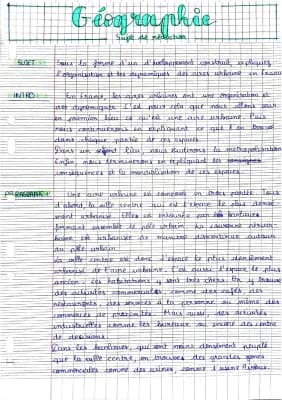 Géographie
Sujet de rédaction
SUJET : Sous la forme d'un développement construit, expliquez
l'organisation et les dynamiques des aires urbaine en France
INTRO : En France, les aires urbaines ont une organisation et
des dynamiques. C'est pour cela que nous allons voir
en premier lieu ce qu'est une aire urbaine. Puis
nous continuerons en expliquant ce que l'on trouve
dans chaque partie de ces espaces.
Dans un second lieu, nous étudierons la métropolisation
Enfin, nous terminerons en expliquant les
conséquences et la mondialisation de ces espaces.
Une aire urbaine est composée en trois parties. Tout
d'abord, la ville centre qui est l'espace le plus densé
ment urbanisé. Elle est entourée par banlieues
formant ensemble le pôle urbain. La couronne périur-
baine est urbanisée de manière discontinue autour
du pôle urbain.
La ville centre est donc l'espace le plus densément
urbanisé de l'aire urbaine. C'est aussi l'espace le plus
ancien. Les habitations y sont très chers. On y trouve
des activités commerciales comme des cafés, des
restaurants, des services à la personne ou même des
commerces de proximités. Mais aussi, des activités
industrielles comme les bureaux ou encore des centre
de décisions.
Dans les banlieues, qui sont moins densément peuplé
que la ville centre, on trouve des grandes zones
commerciales comme des usines, comme l'usine